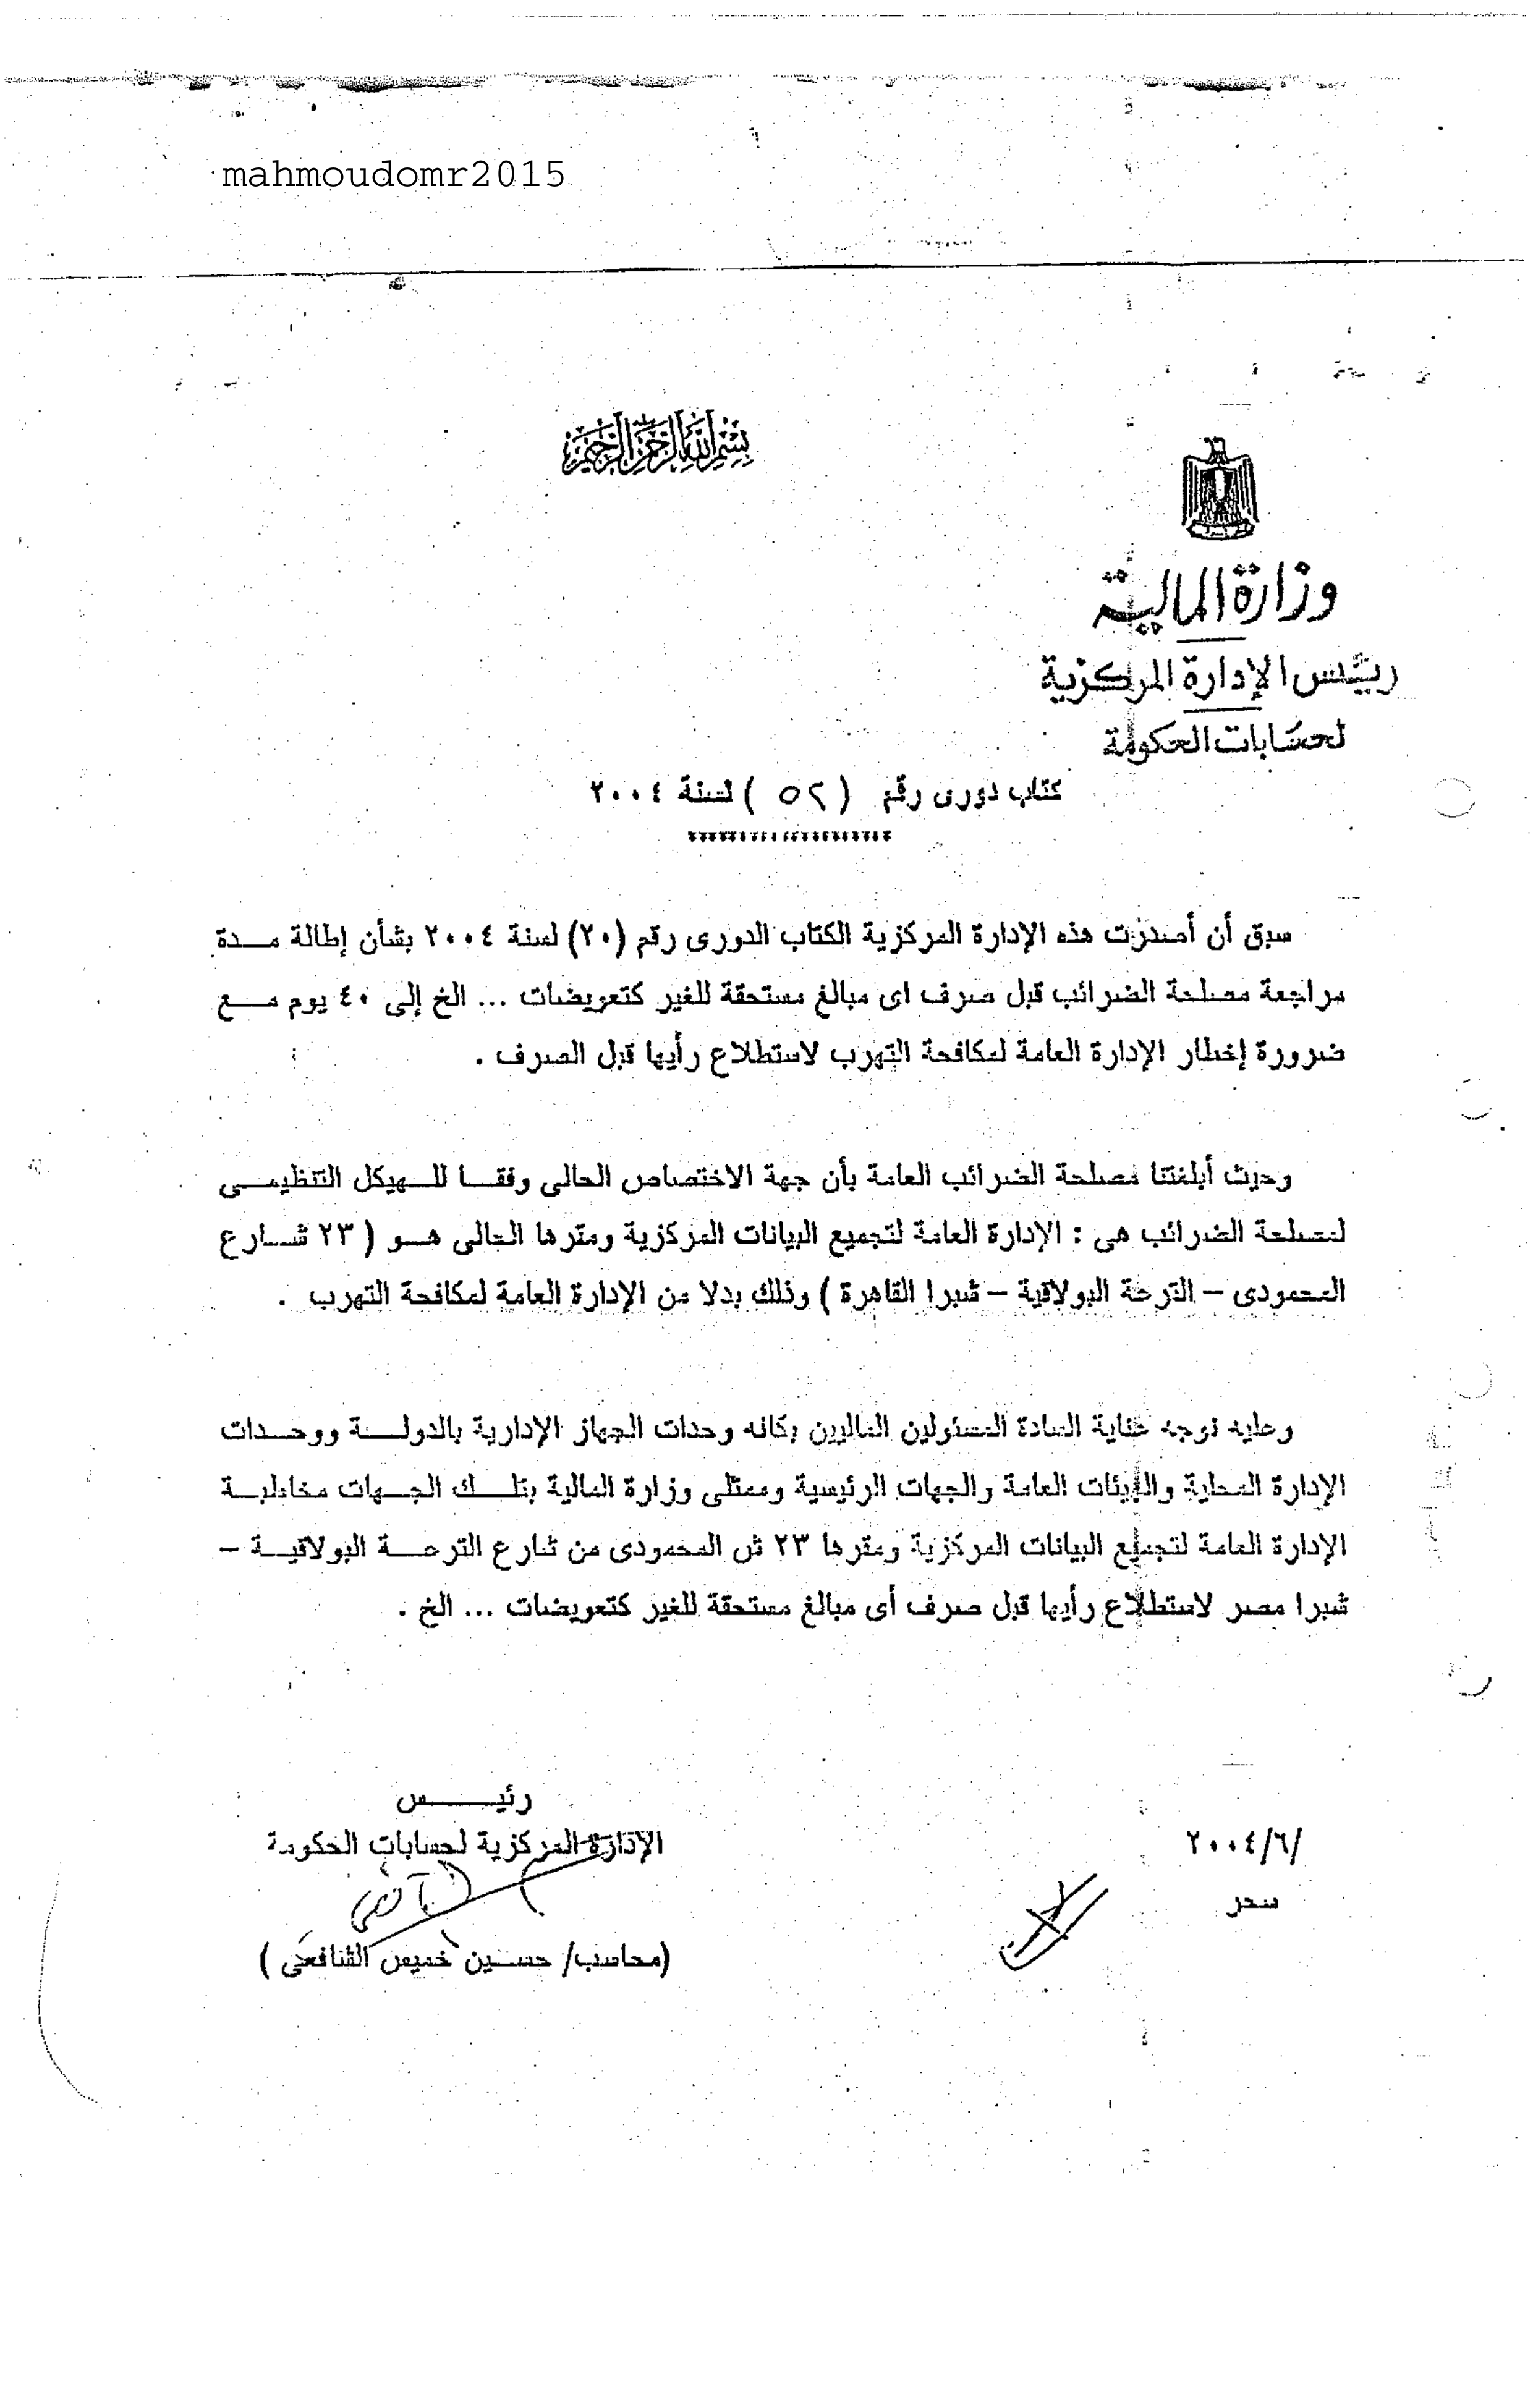 mahmoudomr2015
بسم الله الرحمن الرحيم
وزارة المالية
رئيس الإدارة المركزية
لحسابات الحكومة
كتاب دورى رقم ( ٥٢ ) لسنة ٢٠٠٤
********************
سبق أن أصدرت هذه الإدارة المركزية الكتاب الدورى رقم (٢٠) لسنة ٢٠٠٤ بشأن إطالة مدة
مراجعة مصلحة الضرائب قبل صرف اى مبالغ مستحقة للغير كتعويضات ... الخ إلى ٤٠ يوم مع
ضرورة إخطار الإدارة العامة لمكافحة التهرب لاستطلاع رأيها قبل الصرف .
وحيث أبلغتنا مصلحة الضرائب العامة بأن جهة الاختصاص الحالى وفقا للهيكل التنظيمى
لمصلحة الضرائب هى : الإدارة العامة لتجميع البيانات المركزية ومقرها الحالى هو ( ٢٣ شارع
المحمودى – الترعة البولاقية – شبرا القاهرة ) وذلك بدلا من الإدارة العامة لمكافحة التهرب .
وعليه نوجه عناية السادة المسئولين الماليين بكافه وحدات الجهاز الإدارية بالدولة ووحدات
الإدارة المحلية والهيئات العامة والجهات الرئيسية وممثلى وزارة المالية بتلك الجهات مخاطبة
الإدارة العامة لتجميع البيانات المركزية ومقرها ٢٣ ش المحمودى من شارع الترعة البولاقية –
شبرا مصر لاستطلاع رأيها قبل صرف أى مبالغ مستحقة للغير كتعويضات ... الخ .
رئيس
الإدارة المركزية لحسابات الحكومة
(محاسب/ حسين خميس الشافعى )
/٢٠٠٤/٦
سحر